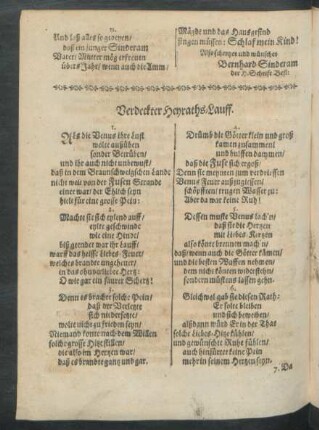 11.
Und laß alles so gedeyen/
daß ein junger Sinderam
Vater/ Mutter mög erfreuen
übers Jahr/ wenn auch die Amm/
Mägde und das Hausgesind
singen müssen: Schlaf mein Kind!
Also schertzen und wünschen
Bernhard Sinderam
der H. Schrifft Befl.
Verdeckter Heyraths-Lauff.
1.
ALs die Venus ihre Lust
wolte ausüben
sonder Betrüben/
und ihr auch nicht unbewust/
daß in dem Braunschweigschen Lande
nicht weit von der Fusen Strande
einer war/ der Ehlich seyn
hielt für eine große Pein:
2.
Machte sie sich eylend auff/
eylte geschwinde
wie eine Hinde/
biß geendet war ihr Lauff:
warff das heisse Liebes-Feuer/
welches brandte ungeheuer/
in das
O wie gar ein saurer Schertz!
3.
Denn es brachte solche Pein/
daß der Verletzte
sich niedersetzte/
wolte nicht zu frieden seyn/
Niemand konte nach dem Willen
solche grosse Hitze stillen/
die also im Hertzen war/
daß es brandte gantz und gar.
4.
Drümb die Götter klein und groß
kamen zusammen/
und
daß die Fuse sich ergoß/
Denn sie meynten zum verdriessen
Venus Feuer auszugiessen/
schöpfften
Aber da war keine Ruh!
5.
Dessen muste Venus lach'n/
daß sie die Hertzen
mit Liebes-Kertzen
also könte brennen mach'n/
daß wenn auch die Götter kämen/
und die besten Waffen nehmen/
dem nicht können widerstehn/
sondern müstens lassen gehn.
6.
Gleichwol gab sie diesen Rath:
Er solte bleiben
und sich beweiben/
alßdann würd Er in der That
solche Liebes-Hitz fühlen/
und gewünschte Ruhe fühlen/
auch hinführter keine Pein
mehr in seinem Hertzen seyn.
7. Da